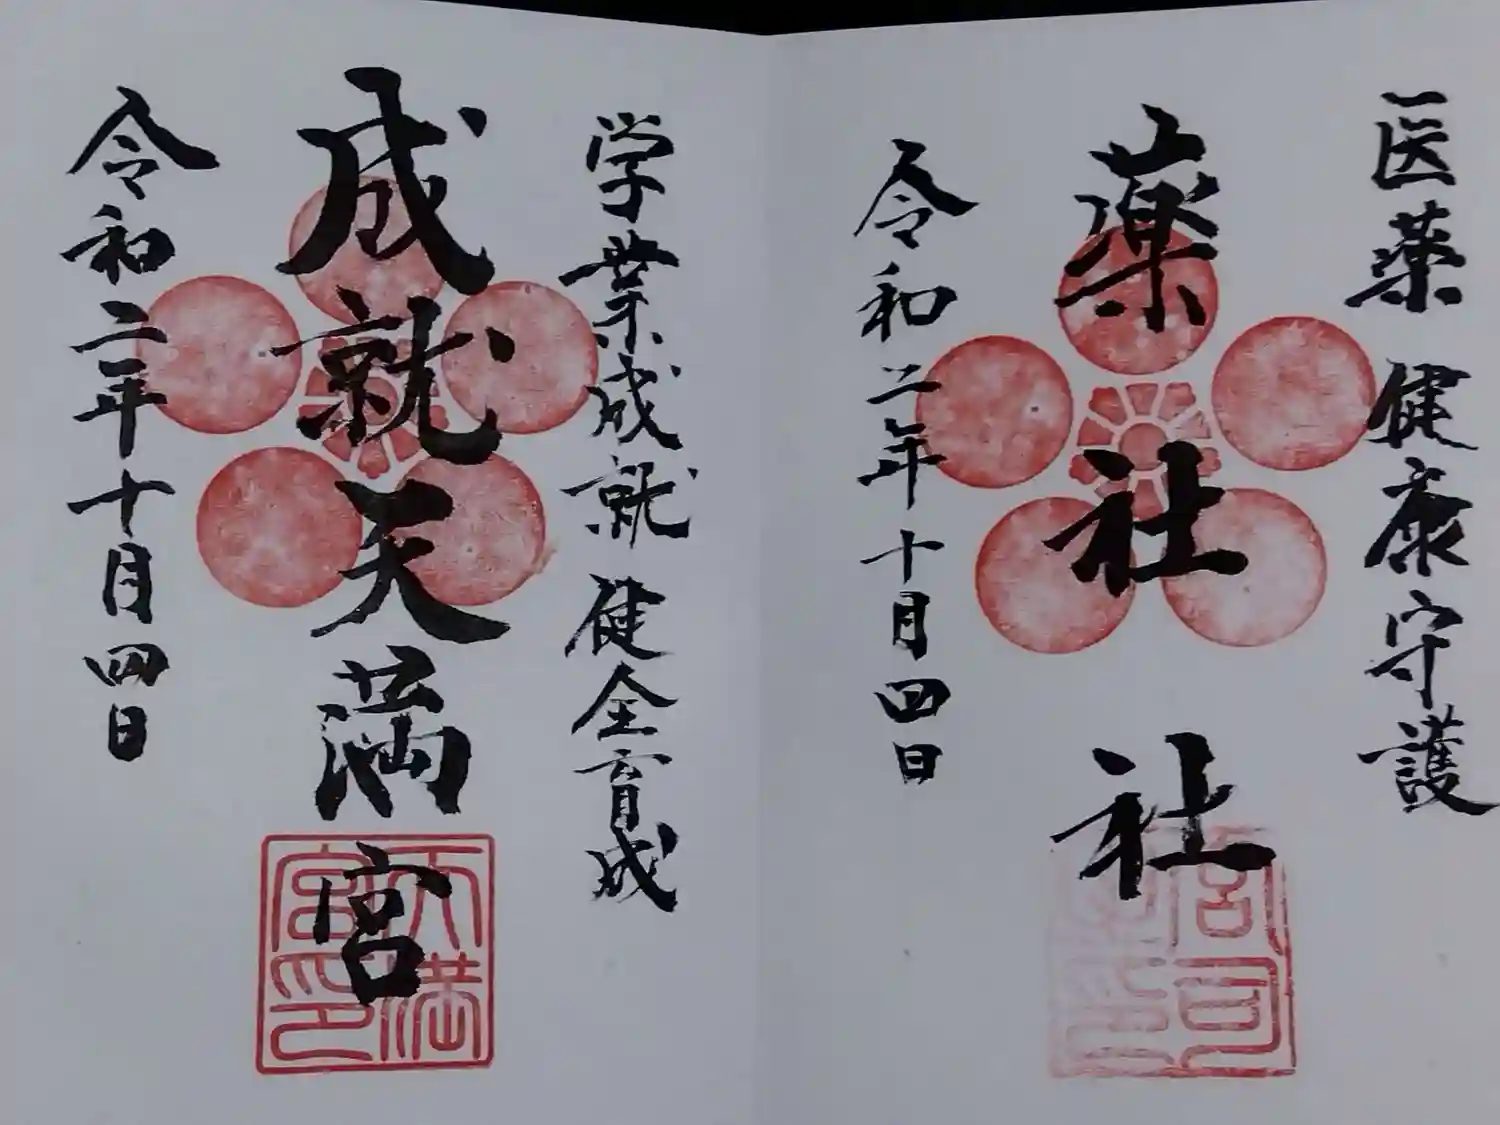 医薬 健康守護
薬社社
令和二年十月四日
宮司
学業成就 健全育成
成就天満宮
天満宮印
令和二年十月四日